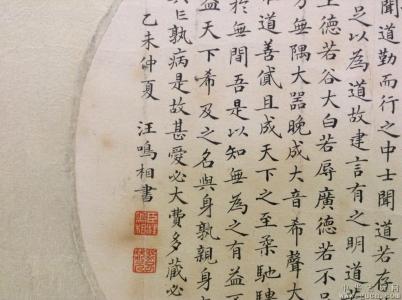 聞道勤而行之中士聞道若存
足以為道故建言有之明道若
上德若谷大白若辱廣德若不
方無隅大器晚成大音希聲大
道善貸且成天下之至柔馳騁
於無間吾是以知無為之有益
益天下希及之名與身孰親身
亡孰病是故甚愛必大費多藏必
乙未仲夏 汪鳴相書